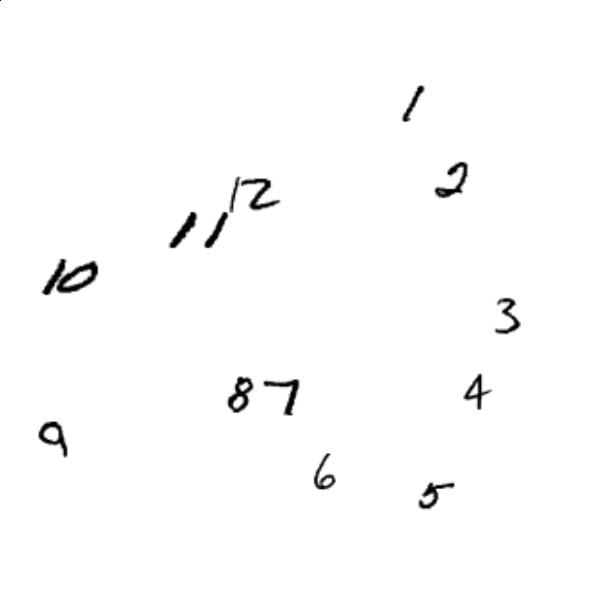 1
2
12
11
10
3
8 7
4
9
6
5